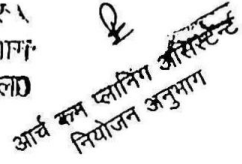 आर्च कम प्लानिंग असिस्टेन्ट
नियोजन अनुभाग